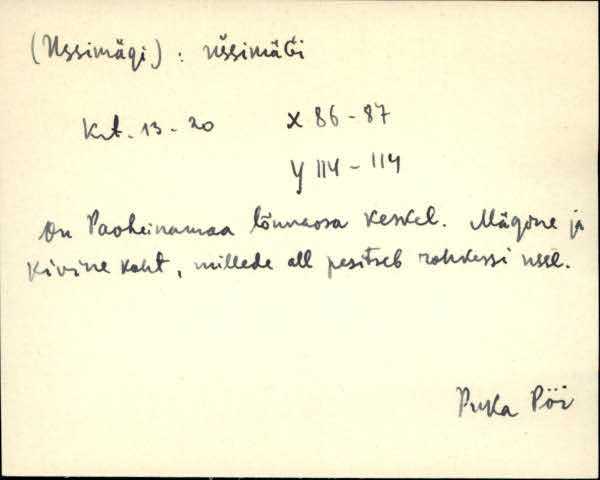 (Ussimägi) : ussimäGi
Krt. 13 - 20 X 86 - 87
Y 114 - 114
On Paoheinamaa lõunaosa keskel. Mägine ja
kivine koht, millede all pesitseb rohkesti usse.
Puka Pör